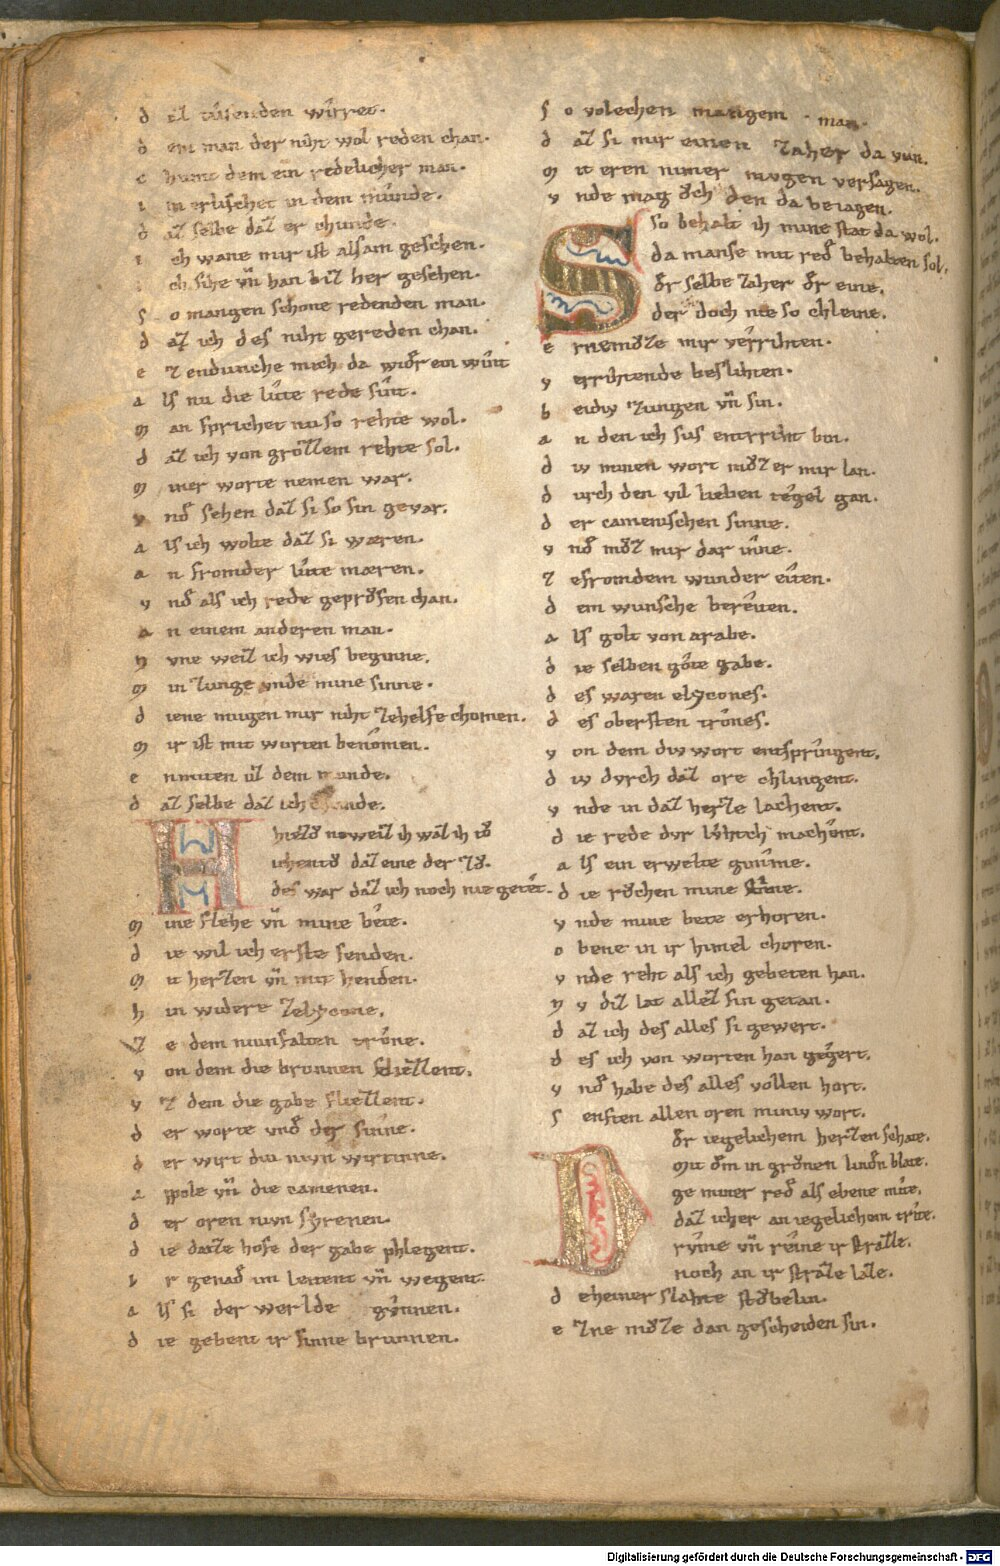 d az tusenden wirret.
d em man der niht wol reden chan.
c humt dem ein redelicher man.
i m erlischet in dem munde.
d az selbe daz er chunde.
i ch wane mir ist alsam geschen.
i ch sihe vn̄ han biz her gesehen.
s o mangen schone redenden man.
d az ich des niht gereden chan.
e z endunche mich da widͤr ein wint
a ls nu die lûte rede sint.
m an sprichet nu so rehte wol.
d az ich von grôzzem rehte sol.
m iner worte nemen war.
v nd̄ sehen daz si so sin gevar.
a ls ich wolte daz si wæren.
a n fromder lûte mæren.
v nd̄ als ich rede geprůfen chan.
a n einem anderen man.
n vne weiz ich wies beginne.
m in zunge vnde mine sinne.
d iene mugen mir niht zehelfe chomen.
m ir ist mit worten benomen.
e nmiten uz dem munde.
d az selbe daz ich chunde.
H
ich wænt daz eine der zů.
des war daz ich noch nie getet.
m ine flehe vn̄ mine bête.
d ie wil ich erste senden.
m it herzen vn̄ mit henden.
h in widere zelycone.
z e dem niunfalten trône.
v on dem die brunnen diezzent.
v z dem die gabe fliezzent.
d er worte vnd̄ der sinne.
d er wirt diu niun wirtinne.
a ppole vn̄ die camenen.
d er oren niun syrenen.
d ie datze hofe der gabe phlegent.
i r genad̄ im lenent vn̄ wegent.
a ls si der werlde gynnen.
d ie gebent ir sinne brunnen.
s o volechen mangem man.
d az si mir einen zaher da von.
m it eren nimer mugen versagen.
v nde mag och den da beiagen.
S
so behalt ih mine stat da wol.
da manse mit red̄ behalten sol.
dͤr selbe zaher dͤr eine.
der doch nie so chleine.
e rnemůze mir verrihten.
v errihtende beslihten.
b eidiv zungen vn̄ sin.
a n den ich sus entrriht bin.
d iv minen wort můz er mir lan.
d urch den vil lieben tegel gan.
d er camenischen sinne.
v nd̄ můz mir dar inne.
z efromdem wunder eiten.
d em wunsche bereiten.
a ls golt von arabe.
d ie selben gôte gabe.
d es waren elycones.
d es obersten trônes.
v on dem div wort entspringent.
d iv dvrch daz ore chlingent.
v nde in daz herze lachent.
d ie rede dvr lvhtich machent.
a ls ein erwelte gimme.
d ie růchen mine stimme.
v nde mine bete erhoren.
o bene in ir himel choren.
v nde reht als ich gebeten han.
n v diz lat allez sin getan.
d az ich des alles si gewert.
d es ich von worten han gegert.
v nd̄ habe des alles vollen hort.
s enften allen oren miniv wort.
D
dͤr iegelichem herzen schate.
mit dͤm in grůnen lindͤn blate.
ge miner red̄ als ebene mite.
daz icher an iegelichom trite.
ryme vn̄ reine ir strazze.
noch an ir straze laze.
d eheiner slahte stůbelin.
e zne můze dan gescheiden sin.
Digitalisierung gefördert durch die Deutsche Forschungsgemeinschaft - DFG